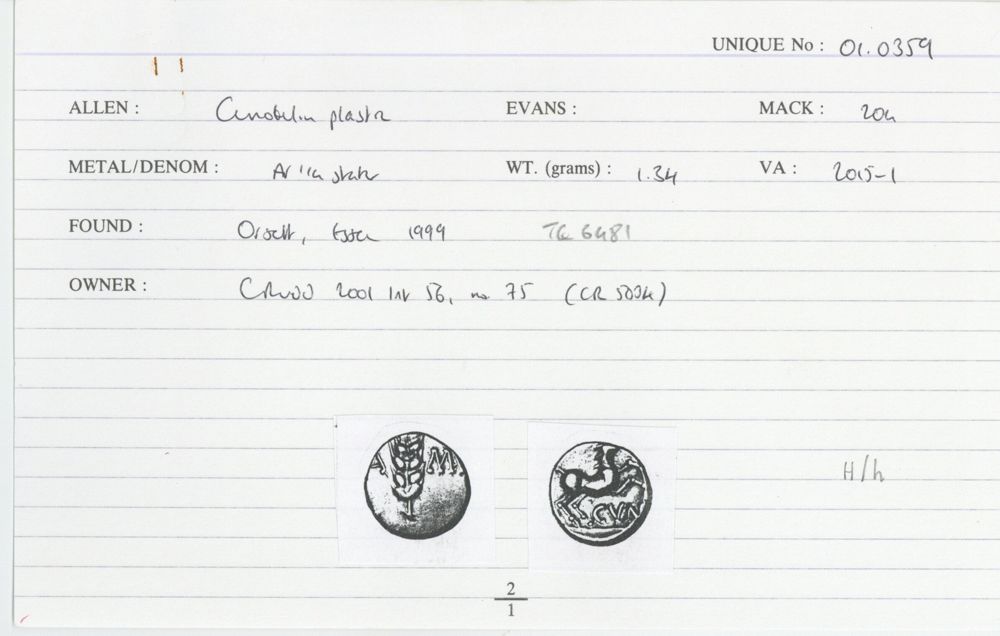 UNIQUE No : 01.0359
ALLEN : Cunobelin plastic EVANS : MACK : 204
METAL/DENOM : AV 1/4 stater WT. (grams) : 1.34 VA : 2015-1
FOUND : Orsett, Essex 1999 TQ 6481
OWNER : CRUDD 2001 list 56, no 75 (CR 5034)
A M
CVN
H/h
2
1